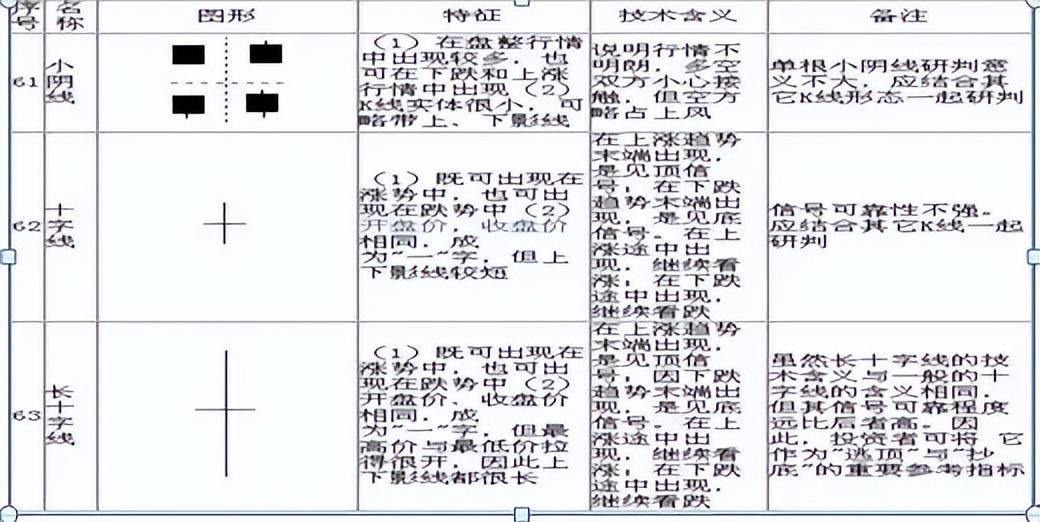 序号
名称
图形
特征
技术含义
备注
61
小阴线
（1）在盘整行情
中出现较多，也
可在下跌和上涨
行情中出现（2）
K线实体很小，可
略带上、下影线
说明行情不
明朗，多空
双方小心接
触，但空方
略占上风
单根小阴线研判意
义不大，应结合其
它K线形态一起研判
62
十字线
（1）既可出现在
涨势中，也可出
现在跌势中（2）
开盘价，收盘价
相同，成
为“一”字，但上
下影线较短
在上涨趋势
末端出现，
是见顶信
号；在下跌
趋势末端出
现，是见底
信号。在上
涨途中出
现，继续看
涨；在下跌
途中出现，
继续看跌
信号可靠性不强。
应结合其它K线一起
研判
63
长十字线
（1）既可出现在
涨势中，也可出
现在跌势中（2）
开盘价、收盘价
相同，成
为“一”字，但最
高价与最低价拉
得很开，因此上
下影线都很长
在上涨趋势
末端出现，
是见顶信
号；因下跌
趋势末端出
现，是见底
信号。在上
涨途中出
现，继续看
涨；在下跌
途中出现，
继续看跌
虽然长十字线的技
术含义与一般的十
字线的含义相同，
但其信号可靠程度
远比后者高。因
此，投资者可将 它
作为“逃顶”与“抄
底”的重要参考指标